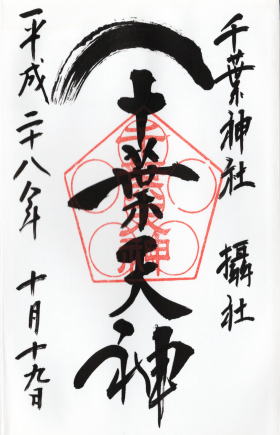 千葉神社 攝社
千葉天神
平成二十八年 十月十九日